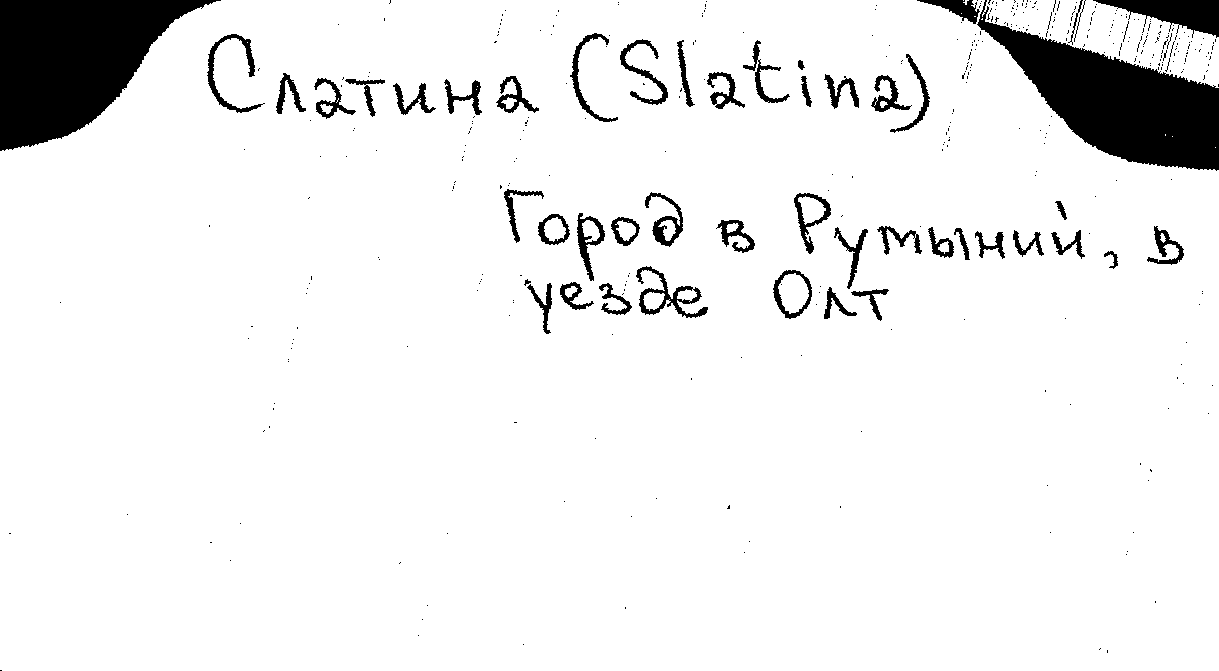 Слатина (Slatina)
Город в Румыний, в
уезде Олт